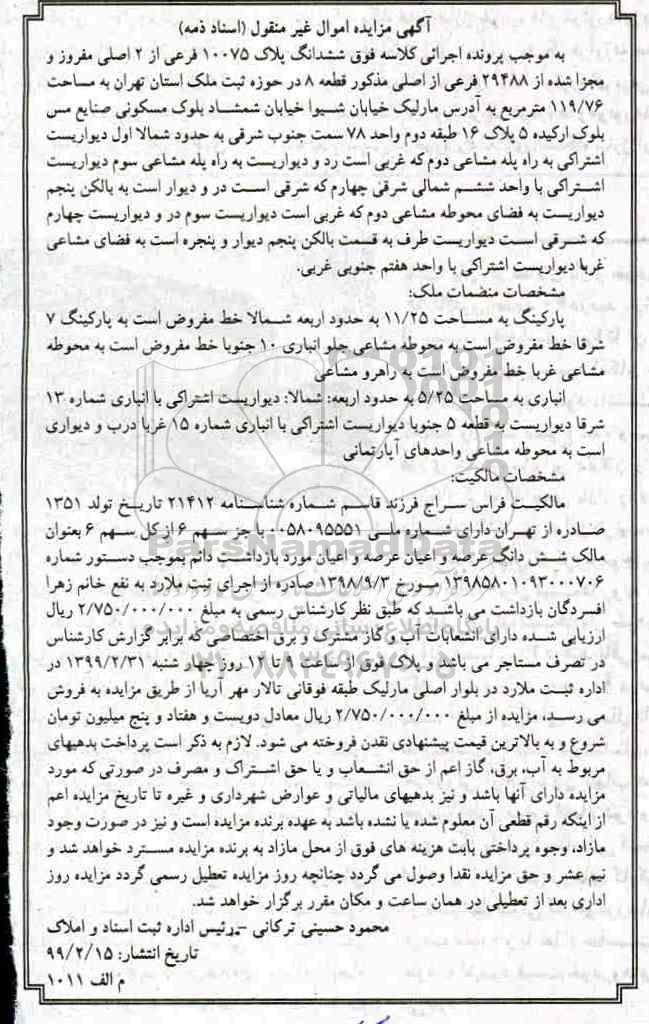 آگهی مزایده اموال غیر منقول (اسناد ذمه)
به موجب پرونده اجرائی کلاسه فوق ششدانگ پلاک ۱۰۰۷۵ فرعی از ۲ اصلی مفروز و
مجزا شده از ۲۹۴۸۸ فرعی از اصلی مذکور قطعه ۸ در حوزه ثبت ملک استان تهران به مساحت
۱۱۹/۷۶ مترمربع به آدرس مارلیک خیابان شیوا خیابان شمشاد بلوک مسکونی صنایع مس
بلوک ارکیده ۵ پلاک ۱۶ طبقه دوم واحد ۷۸ سمت جنوب شرقی به حدود شمالا اول دیواریست
اشتراکی به راه پله مشاعی دوم که غربی است رد و دیواریست به راه پله مشاعی سوم دیواریست
اشتراکی با واحد ششم شمالی شرقی چهارم که شرقی است در و دیوار است به بالکن پنجم
دیواریست به فضای محوطه مشاعی دوم که غربی است دیواریست سوم در و دیواریست چهارم
که شرقی است دیواریست طرف به قسمت بالکن پنجم دیوار و پنجره است به فضای مشاعی
غربا دیواریست اشتراکی با واحد هفتم جنوبی غربی.
مشخصات منضمات ملک:
پارکینگ به مساحت ۱۱/۲۵ به حدود اربعه شمالا خط مفروض است به پارکینگ ۷
شرقا خط مفروض است به محوطه مشاعی جلو انباری ۱۰ جنوبا خط مفروض است به محوطه
مشاعی غربا خط مفروض است به راهرو مشاعی
انباری به مساحت ۵/۲۵ به حدود اربعه: شمالا: دیواریست اشتراکی با انباری شماره ۱۳
شرقا دیواریست به قطعه ۵ جنوبا دیواریست اشتراکی با انباری شماره ۱۵ غربا درب و دیواری
است به محوطه مشاعی واحدهای آپارتمانی
مشخصات مالکیت:
مالکیت فراس سراج فرزند قاسم شماره شناسنامه ۲۱۴۱۲ تاریخ تولد ۱۳۵۱
صادره از تهران دارای شماره ملی ۰۰۵۸۰۹۵۵۵۱ با جز سهم ۶ از کل سهم ۶ بعنوان
مالک شش دانگ عرصه و اعیان عرصه و اعیان مورد بازداشت دائم بموجب دستور شماره
۱۳۹۸۵۸۰۱۰۹۳۰۰۰۷۰۶ مورخ ۱۳۹۸/۹/۳ صادره از اجرای ثبت ملارد به نفع خانم زهرا
افسردگان بازداشت می باشد که طبق نظر کارشناس رسمی به مبلغ ۲/۷۵۰/۰۰۰/۰۰۰ ریال
ارزیابی شده دارای انشعابات آب و گاز مشترک و برق اختصاصی که برابر گزارش کارشناس
در تصرف مستاجر می باشد و پلاک فوق از ساعت ۹ تا ۱۲ روز چهار شنبه ۱۳۹۹/۲/۳۱ در
اداره ثبت ملارد در بلوار اصلی مارلیک طبقه فوقانی تالار مهر آریا از طریق مزایده به فروش
می رسد، مزایده از مبلغ ۲/۷۵۰/۰۰۰/۰۰۰ ریال معادل دویست و هفتاد و پنج میلیون تومان
شروع و به بالاترین قیمت پیشنهادی نقدن فروخته می شود. لازم به ذکر است پرداخت بدهیهای
مربوط به آب، برق، گاز اعم از حق انشعاب و یا حق اشتراک و مصرف در صورتی که مورد
مزایده دارای آنها باشد و نیز بدهیهای مالیاتی و عوارض شهرداری و غیره تا تاریخ مزایده اعم
از اینکه رقم قطعی آن معلوم شده یا نشده باشد به عهده برنده مزایده است و نیز در صورت وجود
مازاد، وجوه پرداختی بابت هزینه های فوق از محل مازاد به برنده مزایده مسترد خواهد شد و
نیم عشر و حق مزایده نقدا وصول می گردد چنانچه روز مزایده تعطیل رسمی گردد مزایده روز
اداری بعد از تعطیلی در همان ساعت و مکان مقرر برگزار خواهد شد.
محمود حسینی ترکانی - رئیس اداره ثبت اسناد و املاک
تاریخ انتشار: ۹۹/۲/۱۵
م الف ۱۰۱۱
ParsNamadData
۰۲۱-۸۸۳۴۹۶۷۰-۵